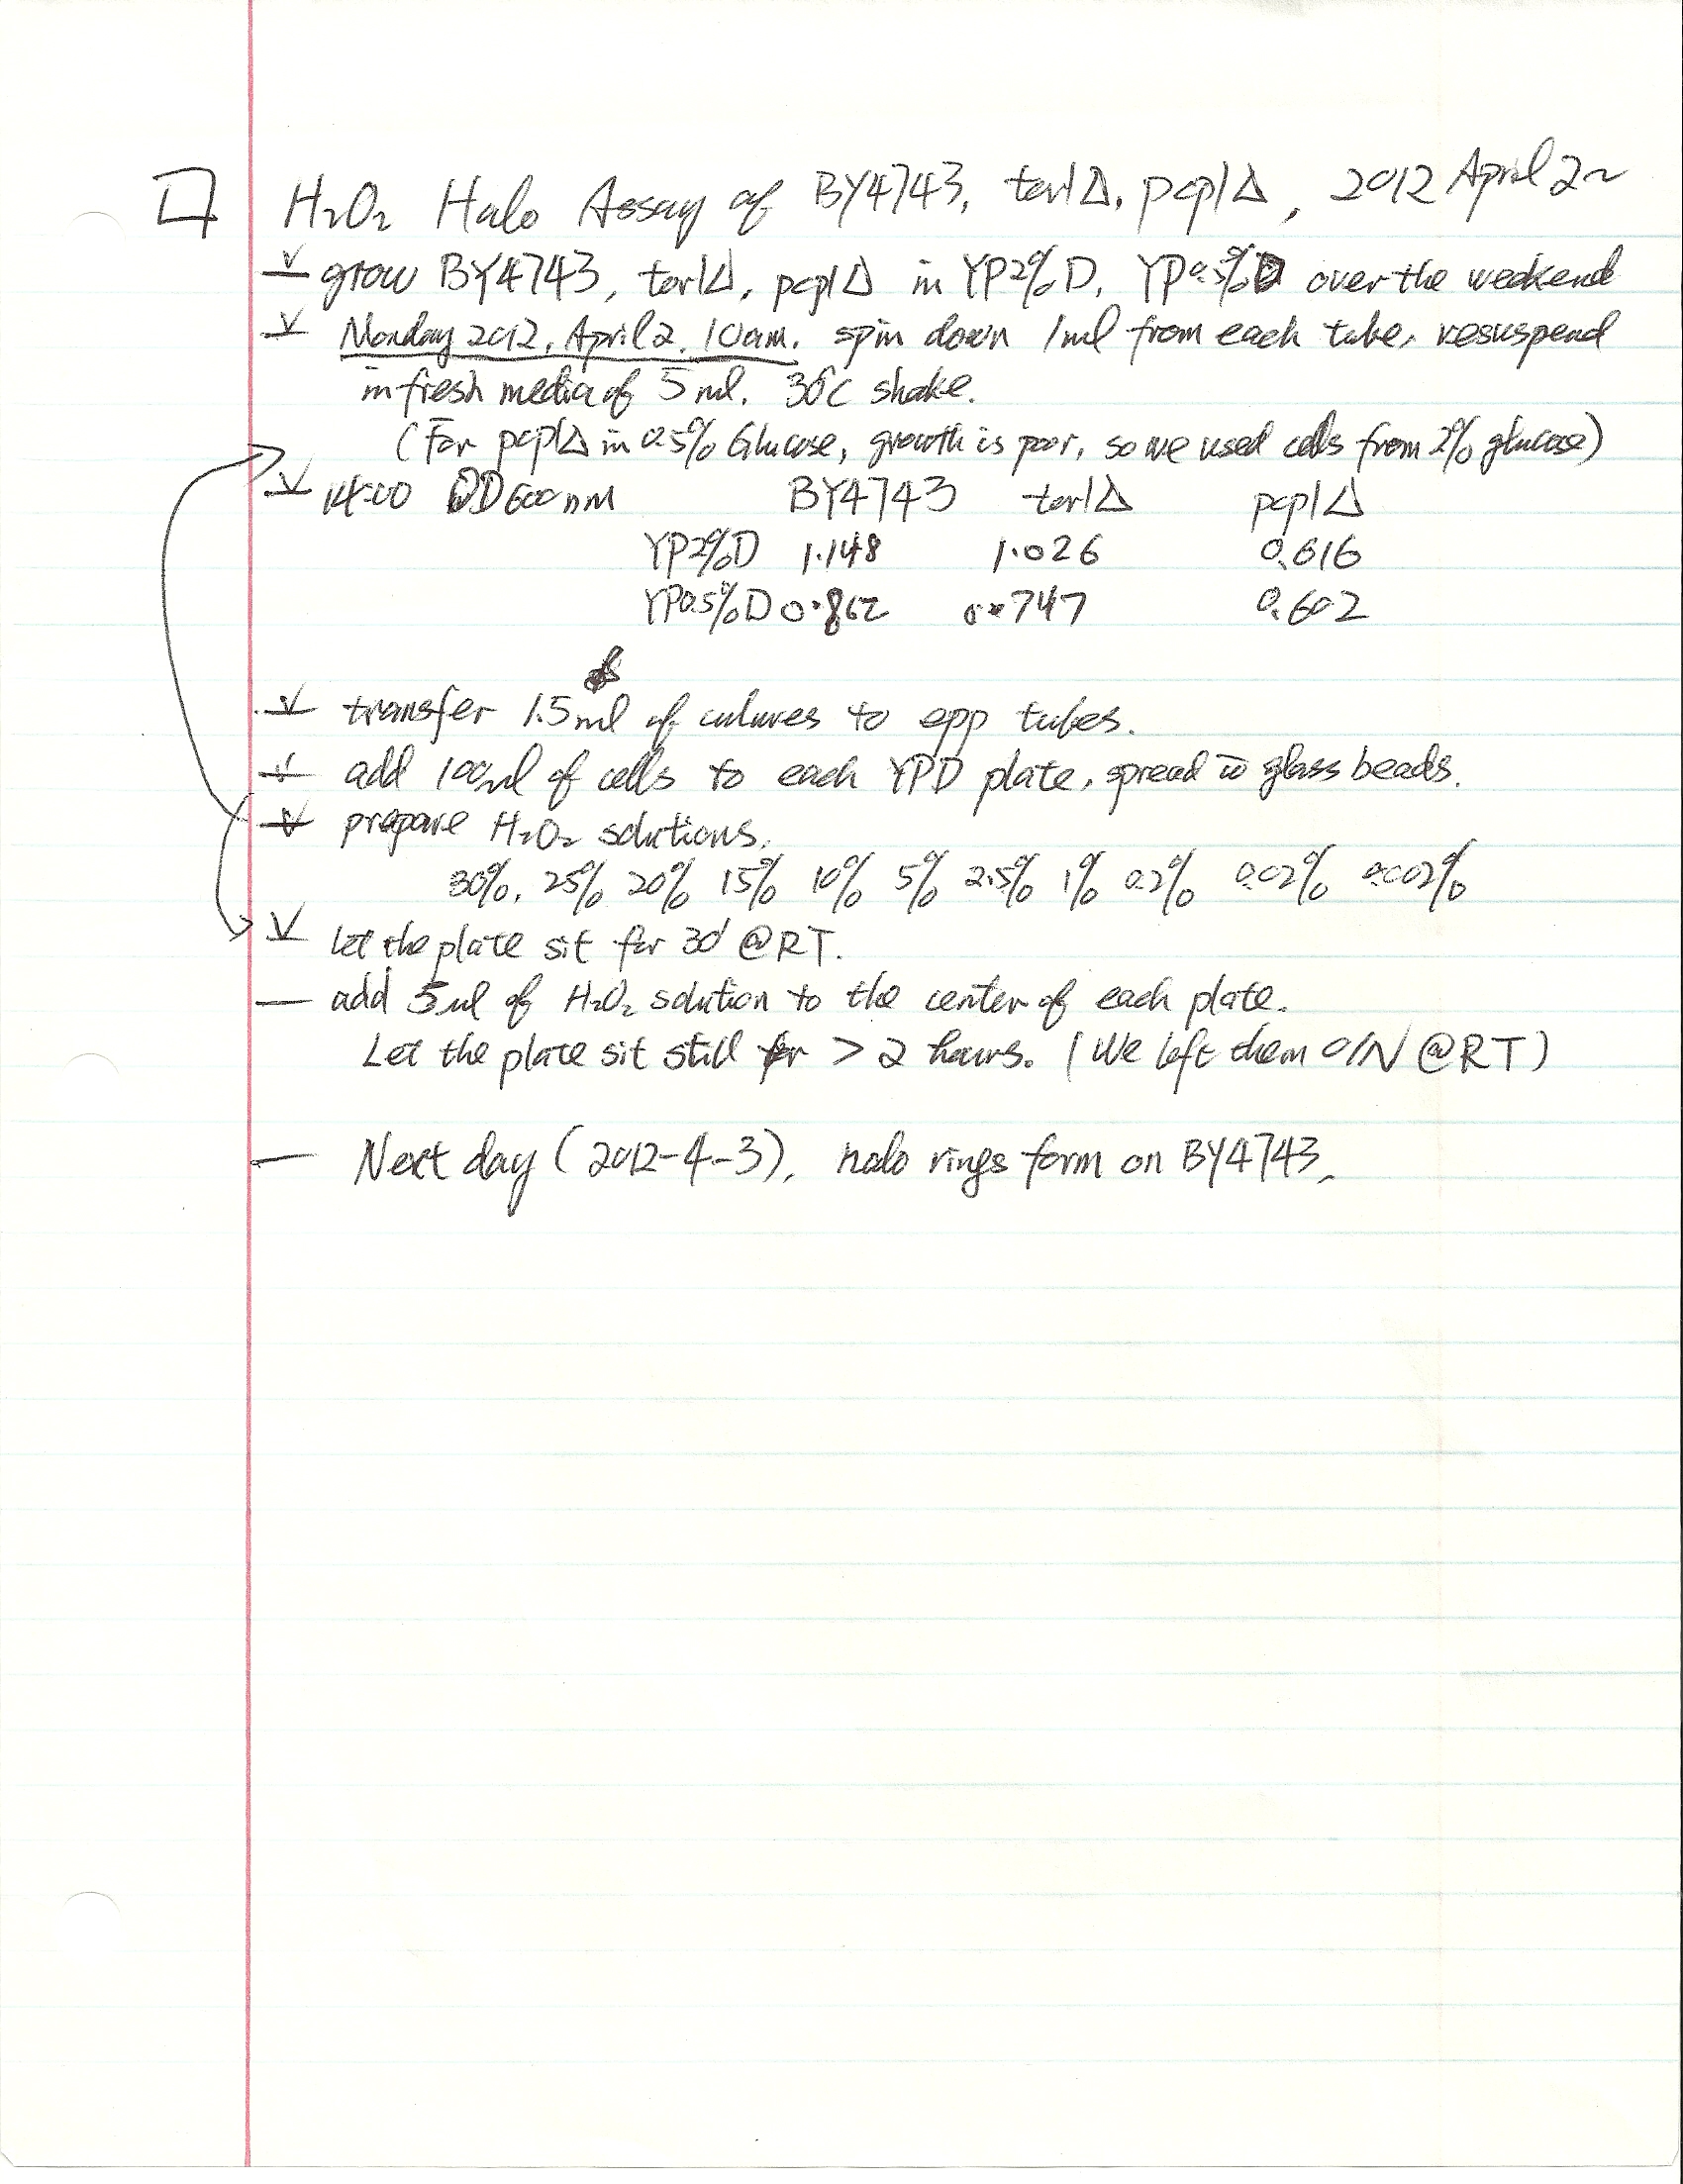 H₂O₂ Halo Assay of BY4743, tor1Δ, pcp1Δ, 2012 April 2~
grow BY4743, tor1Δ, pcp1Δ in YP2%D, YP0.5%D over the weekend
Monday 2012, April 2, 10am. spin down 1ml from each tube, resuspend
in fresh media of 5 ml. 30°C shake.
(For pcp1Δ in 0.5% Glucose, growth is poor, so we used cells from 2% glucose)
14:00 OD600nm BY4743 tor1Δ pcp1Δ
YP2%D 1.148 1.026 0.616
YP0.5%D 0.862 0.747 0.602
transfer 1.5ml of culures to epp tubes.
add 100ul of cells to each YPD plate, spread w̅ glass beads.
prepare H₂O₂ solutions.
30%, 25% 20% 15% 10% 5% 2.5% 1% 0.2% 0.02% 0.002%
let the plate sit for 30' @RT.
— add 5ul of H₂O₂ solution to the center of each plate.
Let the plate sit still for > 2 hours. (We left them O/N @RT)
— Next day (2012-4-3), halo rings form on BY4743.